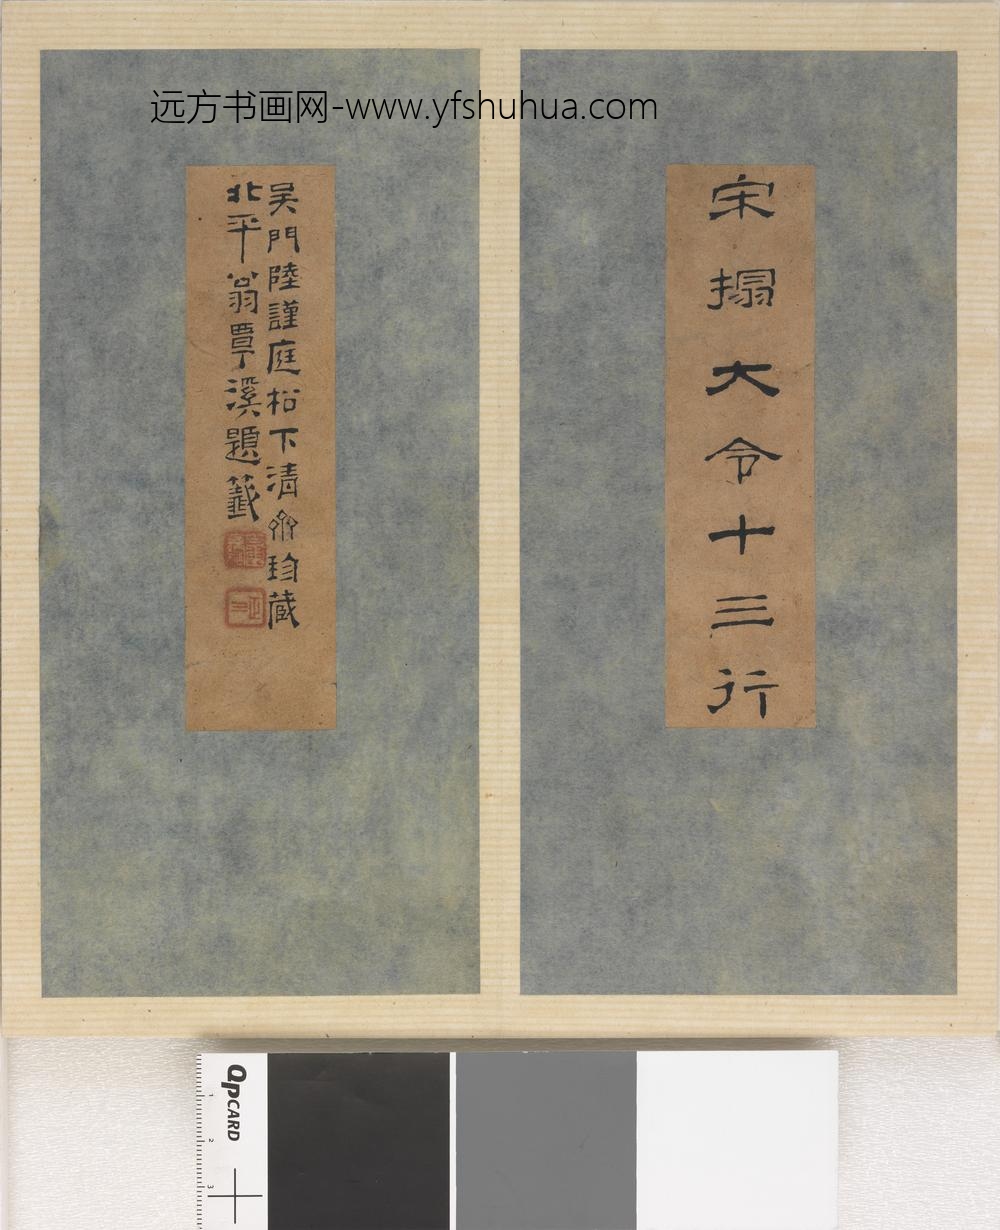 远方书画网-www.yfshuhua.com
宋搨大令十三行
吳門陸謹庭松下清齋珍蔵
北平翁覃溪題籤
QPCARD
1
2
3